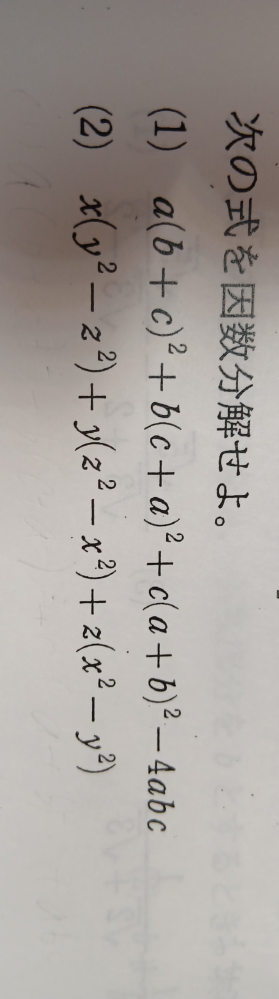 次の式を因数分解せよ。
(1) a(b+c)²+b(c+a)²+c(a+b)²−4abc
(2) x(y²−z²)+y(z²−x²)+z(x²−y²)